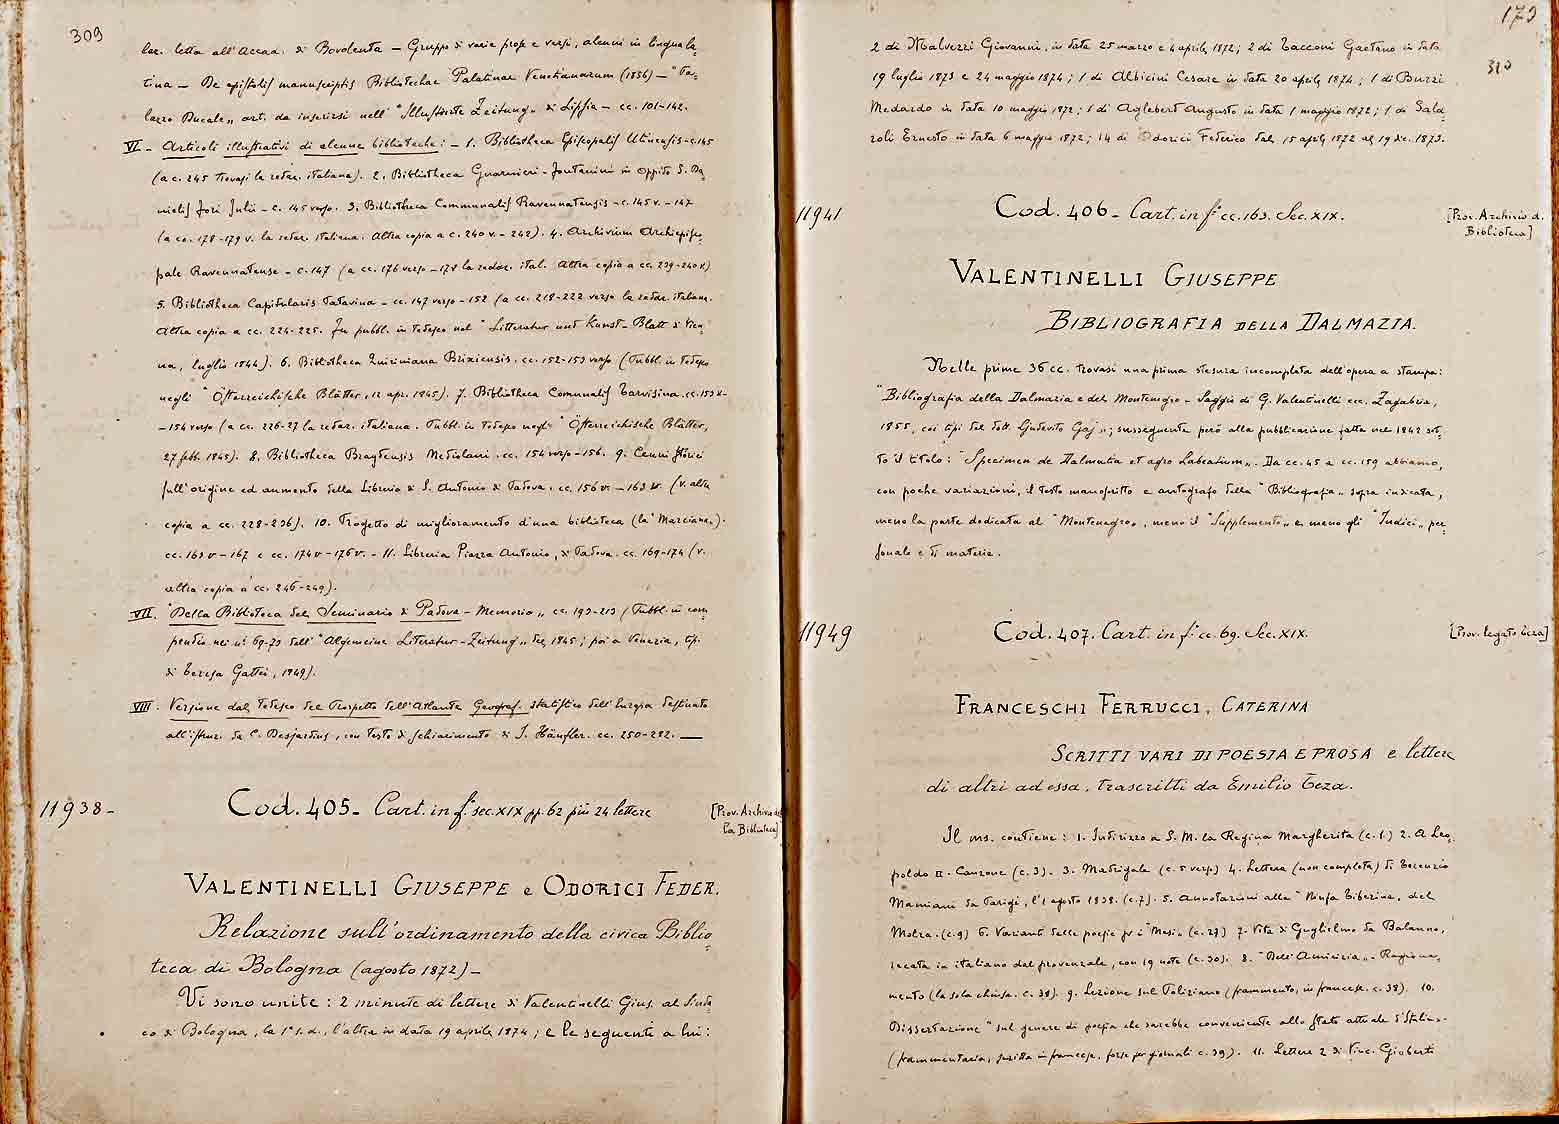 309
lar. letta all'Accad. di Bovolenta — Gruppo di varie prose e versi, alcuni in lingua la-
tina — De epistolis manuscriptis Bibliothecae Palatinae Venetianarum (1836) — "Pa-
lazzo Ducale„ art. da inserirsi nell' "Illustrirte Zeitung„ di Lipsia — cc. 101-142.
VI — Articoli illustrativi di alcune biblioteche: — 1. Bibliotheca Episcopalis Utinensis - c. 145
(a c. 245 trovasi la redaz. italiana). 2. Bibliotheca Guarnieri - Fontanini in oppido S. Da-
nielis Fori Julii - c. 145 verso. 3. Bibliotheca Communalis Ravennatensis - c. 145 v. - 147
(a cc. 178-179 v. la redaz. italiana. Altra copia a c. 240 v. - 242). 4. Archivium Archiepisco-
pale Ravennatense - c. 147 (a cc. 176 verso - 178 la redaz. ital. Altra copia a cc. 239-240 v)
5. Bibliotheca Capitularis Patavina - cc. 147 verso - 152 (a cc. 218-222 verso la redaz. italiana.
Altra copia a cc. 224-225. Fu pubbl. in tedesco nel "Litteratur und Kunst - Blatt di Vien-
na, luglio 1844). 6. Bibliotheca Quiriniana Brixiensis. cc. 152-153 verso (Pubbl. in tedesco
negli "Österreichische Blätter, 12 apr. 1845). 7. Bibliotheca Comunalis Tarvisina. cc. 153 v -
- 154 verso (a cc. 226-27 la redaz. italiana. Pubbl. in tedesco negli "Österreichische Blätter,
27 febb. 1845). 8. Bibliotheca Braydensis Mediolani. cc. 154 verso - 156. 9. Cenni storici
sull'origine ed aumento della Libreria di S. Antonio di Padova. cc. 156 v. - 163 v. (v. altra
copia a cc. 228-236). 10. Progetto di miglioramento d'una biblioteca (la Marciana).
cc. 163 v - 167 e cc. 174 v - 176 v. - 11. Libreria Piazza Antonio, di Padova. cc. 169-174 (v.
altra copia a cc. 246-249).
VII. "Della Biblioteca del Seminario di Padova - Memoria„ cc. 193-213 (Pubbl. in com-
pendio nei ni 69-73 dell' "Algemeine Literatur-Zeitung„ del 1845; poi a Venezia, tip.
di Teresa Gattei, 1849).
VIII. Versione dal tedesco del Prospetto dell'Atlante Geograf. statistico dell'Europa destinato
all'istruz. da C. Desjardins, con testo di schiarimento di J. Häufler. cc. 250-282. —
11938 - Cod. 405 - Cart. in f° sec. XIX pp. 62 più 24 lettere [Prov. Archivio del
la Biblioteca]
VALENTINELLI GIUSEPPE e ODORICI FEDER.
Relazione sull'ordinamento della civica Biblio-
teca di Bologna (agosto 1872) -
Vi sono unite: 2 minute di lettere di Valentinelli Gius. al Sinda-
co di Bologna, la 1a s. d., l'altra in data 19 aprile 1874; e le seguenti a lui:
173
310
2 di Malvezzi Giovanni, in data 25 marzo e 4 aprile 1872; 2 di Tacconi Gaetano in data
19 luglio 1873 e 24 maggio 1874; 1 di Albicini Cesare in data 20 aprile 1874; 1 di Buzzi
Medardo in data 10 maggio 1872; 1 di Aglebert Augusto in data 1 maggio 1872; 1 di Sald-
zoli Ernesto in data 6 maggio 1872; 14 di Odorici Federico dal 15 aprile 1872 al 19 dic. 1873.
11941 Cod. 406 - Cart. in f° cc. 163. Sec. XIX. [Prov. Archivio d.
Biblioteca]
VALENTINELLI GIUSEPPE
BIBLIOGRAFIA DELLA DALMAZIA.
Nelle prime 36 cc. trovasi una prima stesura incompleta dell'opera a stampa:
"Bibliografia della Dalmazia e del Montenegro - Saggio di G. Valentinelli ecc. Zagabria,
1855, coi tipi del dott. Ljudevito Gaj„; susseguente però alla pubblicazione fatta nel 1842 sot-
to il titolo: "Specimen de Dalmatia et agro Labeatium„. Da cc. 45 a cc. 159 abbiamo,
con poche variazioni, il testo manoscritto e autografo della "Bibliografia„ sopra indicata,
meno la parte dedicata al "Montenegro„, meno il "Supplemento„ e meno gli "Indici„ per-
sonale e di materie.
11949 Cod. 407. Cart. in f° cc. 69. Sec. XIX. [Prov. legato Teza]
FRANCESCHI FERRUCCI, CATERINA
SCRITTI VARI DI POESIA E PROSA e lettere
di altri ad essa, trascritti da Emilio Teza.
Il ms. contiene: 1. Indirizzo a S. M. la Regina Margherita (c. 1) 2. A Leo-
poldo II - Canzone (c. 3). 3. Madrigale (c. 5 verso) 4. Lettera (non completa) di Terenzio
Mamiani da Parigi, l'1 agosto 1838. (c. 7). 5. Annotazioni alla "Ninfa Tiberina„ del
Molza. (c. 9) 6. Varianti delle poesie per i "Mesi„ (c. 27) 7. Vita di Guglielmo da Balanno,
recata in italiano dal provenzale, con 19 note (c. 30). 8. "Dell'Amicizia„ - Ragiona-
mento (la sola chiusa. c. 38). 9. Lezione sul Poliziano (frammento, in francese. c. 38). 10.
Dissertazione "sul genere di poesia che sarebbe conveniente allo stato attuale d'Italia„.
(frammentaria, scritta in francese, forse per giornali c. 39). 11. Lettere 2 di Vinc. Gioberti